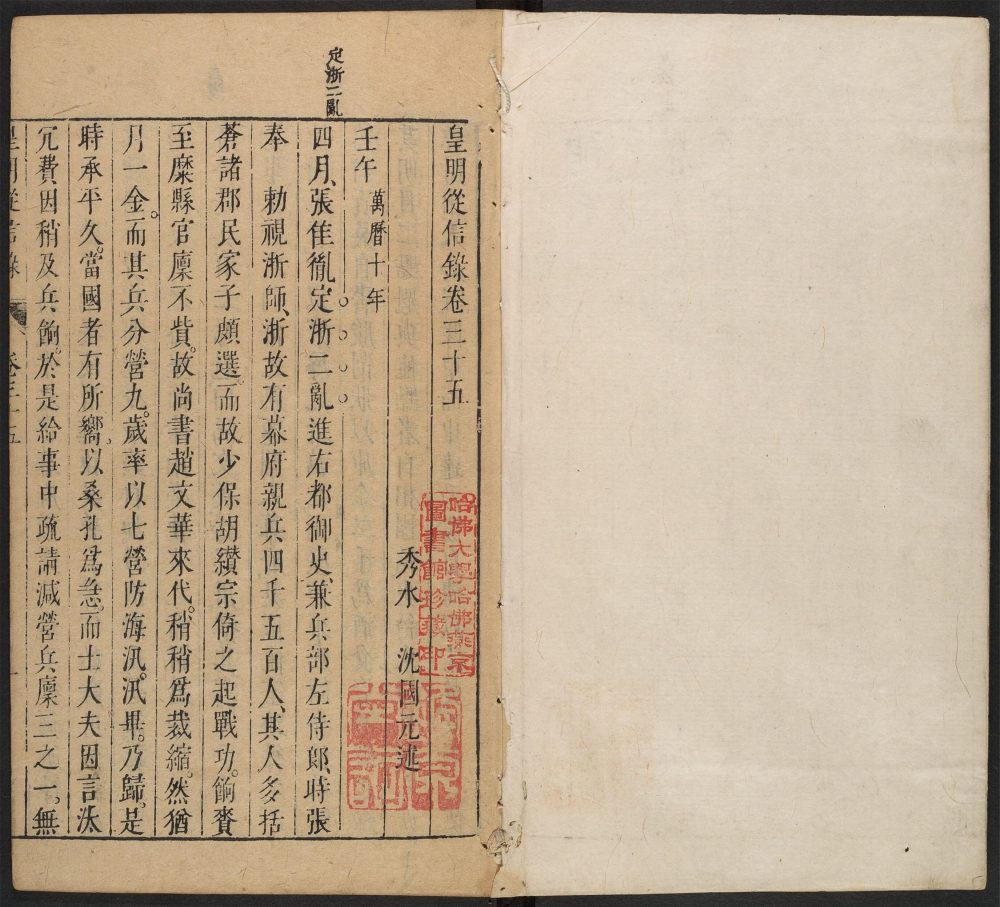 皇明從信錄卷三十五
秀水 沈國元述
壬午 萬曆十年
定浙二亂
四月、張佳胤定浙二亂進右都御史、兼兵部左侍郎、時張
奉 勅視浙師、浙故有幕府親兵四千五百人、其人多括
蒼諸郡民家子頗選。而故少保胡纘宗倚之起戰功。餉賚
至糜縣官廩不貲。故尚書趙文華來代。稍稍爲裁縮。然猶
月一金。而其兵分營九。歲率以七營防海汛。汛畢。乃歸。是
時承平久。當國者有所嚮。以桑孔爲急。而士大夫因言汰
冗費因稍及兵餉。於是給事中疏請減營兵廩三之一。無
皇明從信錄 卷三十五 一
哈佛大學哈佛燕京
圖書館珍藏印